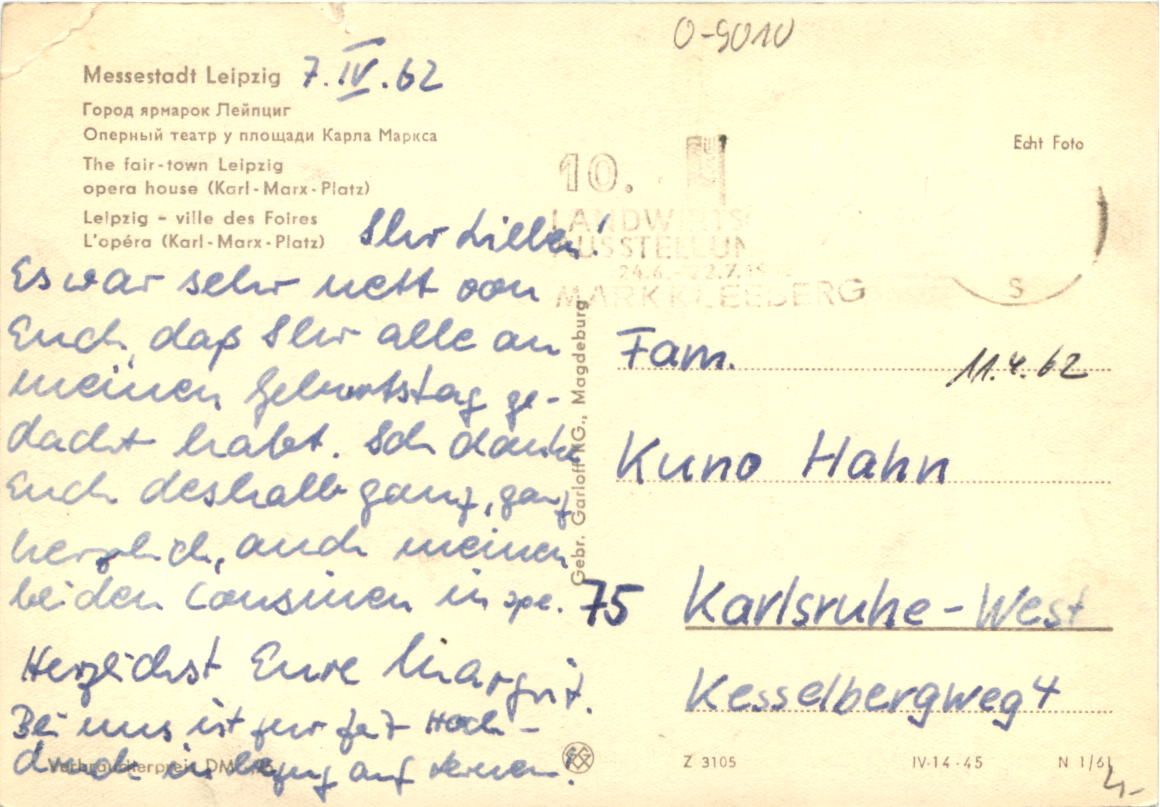 O-9010
Messestadt Leipzig 7. IV. 62
Город ярмарок Лейпциг
Оперный театр у площади Карла Маркса
The fair-town Leipzig
opera house (Karl-Marx-Platz)
Leipzig - ville des Foires
L'opéra (Karl-Marx-Platz)
Echt Foto
10.
LANDWIRTS
AUSSTELLUN
24.6. - 22.7.19
MARKKLEEBERG
S
Ihr Lieben!
Es war sehr nett von
Euch, daß Ihr alle an
meinen Geburtstag ge-
dacht habt. Ich danke
Euch deshalb ganz, ganz
herzlich, auch meinen
beiden Cousinen in spe.
Herzlichst Eure Margrit.
Bei uns ist zur Zeit Hoch-
druck in Bezug auf Lernen.
Gebr. Garloff KG., Magdeburg
Fam.
11.4.62
Kuno Hahn
75 Karlsruhe-West
Kesselbergweg 4
Verbraucherpreis DM
Z 3105 IV-14-45 N 1/61